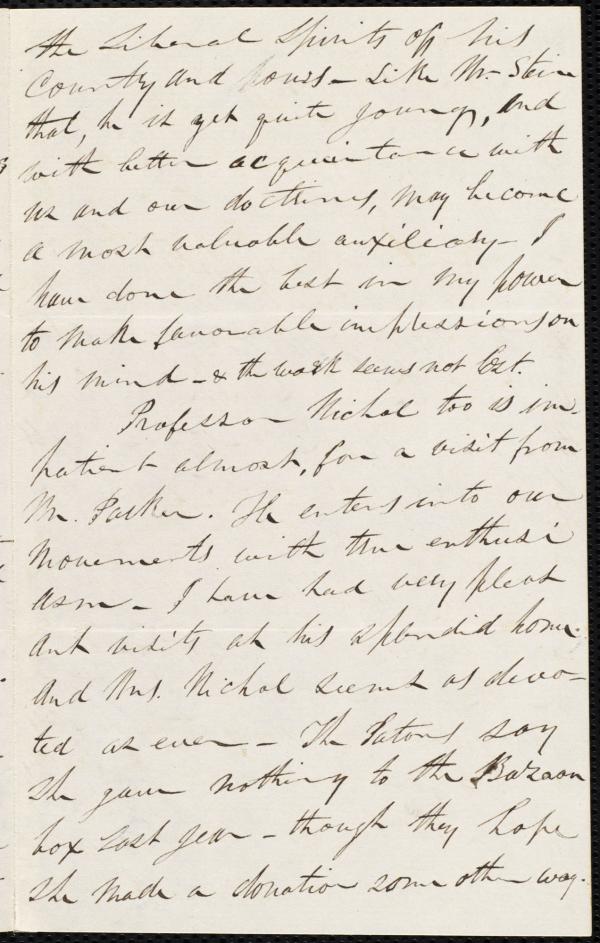 the Liberal Spirits of his
County and house - Like Mr. Stein
that, he is yet quite young, and
with better acquaintance with
us and our doctrines, may become
a most valuable auxiliary - I
have done the best in my power
to make favorable impressions on
his mind - & the work seems not lost.
Professor Nichol too is im-
patient almost, for a visit from
Mr. Parker. He enters into our
movements with true enthusi
asm - I have had very pleas
ant visits at his splendid home.
And Mrs. Nichol seems as devo-
ted as ever - The Patons say
she gave nothing to the Bazaar
box last year - though they hope
she made a donation some other way.